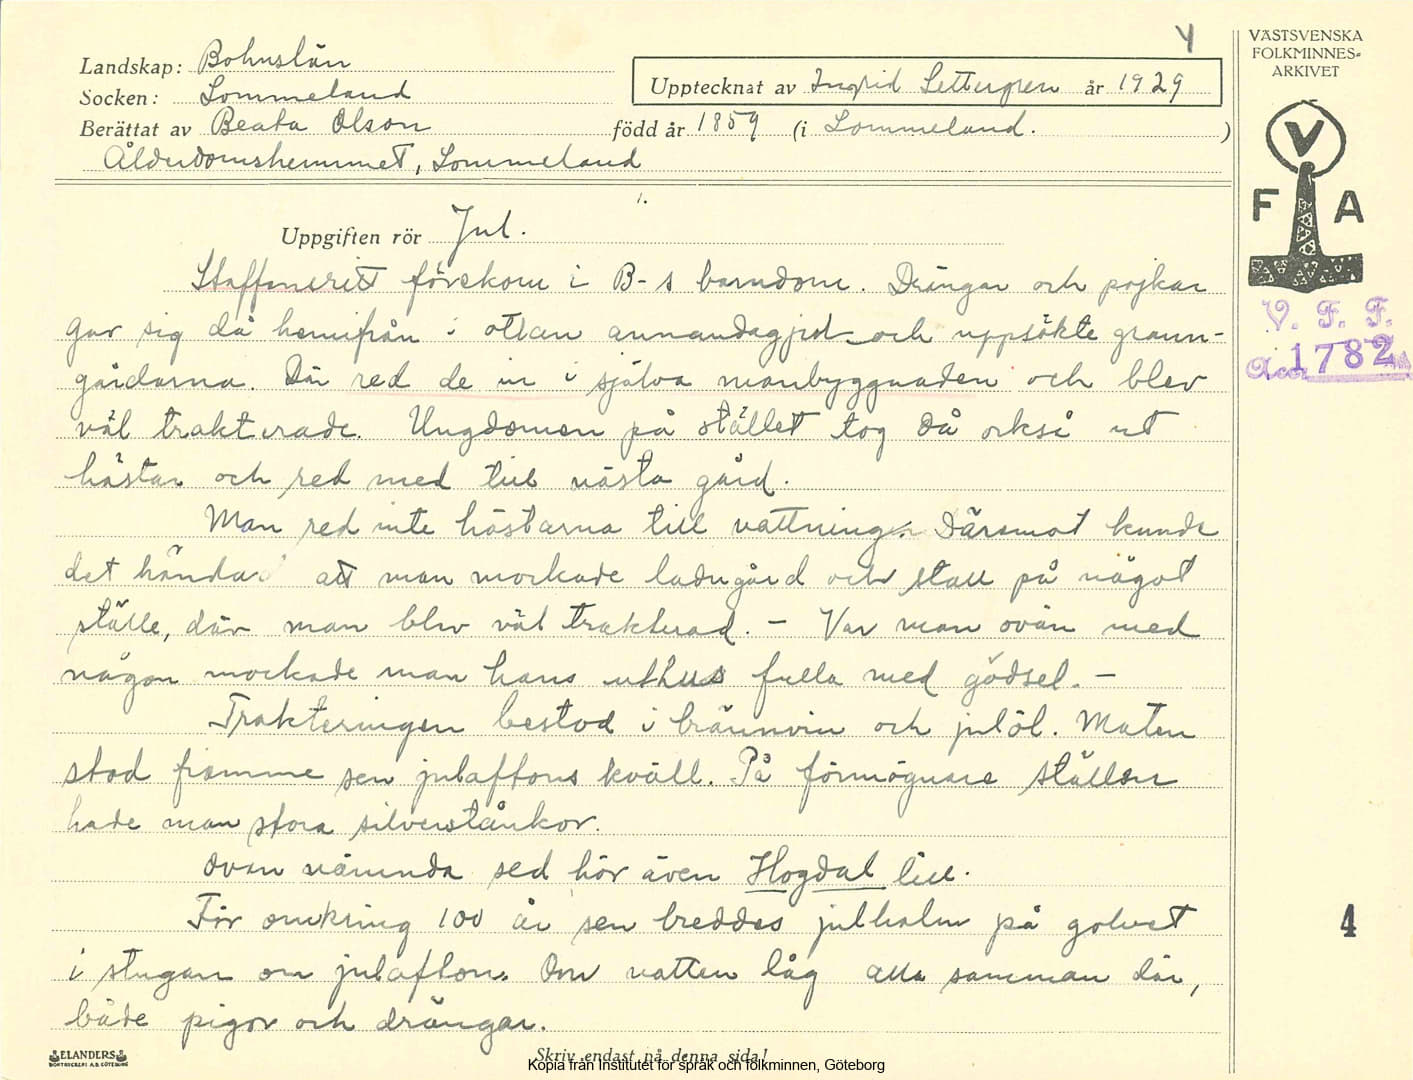 4
Landskap: Bohuslän
Socken: Lommeland
Upptecknat av Ingrid Settergren år 1929
Berättat av Beata Olson född år 1859 (i Lommeland. )
Ålderdomshemmet, Lommeland
1.
Uppgiften rör Jul.
Staffansritt förekom i B-s barndom. Drängar och pojkar
gav sig då hemifrån i ottan annandagjul och uppsökte grann-
gårdarna. Där red de in i själva manbyggnaden och blev
väl trakterade. Ungdomen på stället tog då också ut
hästar och red med till nästa gård.
Man red inte hästarna till vattning. Däremot kunde
det hända att man mockade ladugård och stall på något
ställe, där man blev väl trakterad. - Var man ovän med
någon mockade man hans uthus fulla med gödsel. -
Trakteringen bestod i brännvin och julöl. Maten
stod framme sen julaftons kväll. På förmögnare ställen
hade man stora silverstånkor.
Ovan nämnda sed hör även Hogdal till.
För omkring 100 år sen breddes julhalm på golvet
i stugan om julafton. Om natten låg alla samman där,
både pigor och drängar.
Skriv endast på denna sida!
ELANDERS
BOKTRYCKERI A.B. GÖTEBORG
Kopia från Institutet för språk och folkminnen, Göteborg
VÄSTSVENSKA
FOLKMINNES-
ARKIVET
V
F A
V. F. F.
Acc. 1782
4